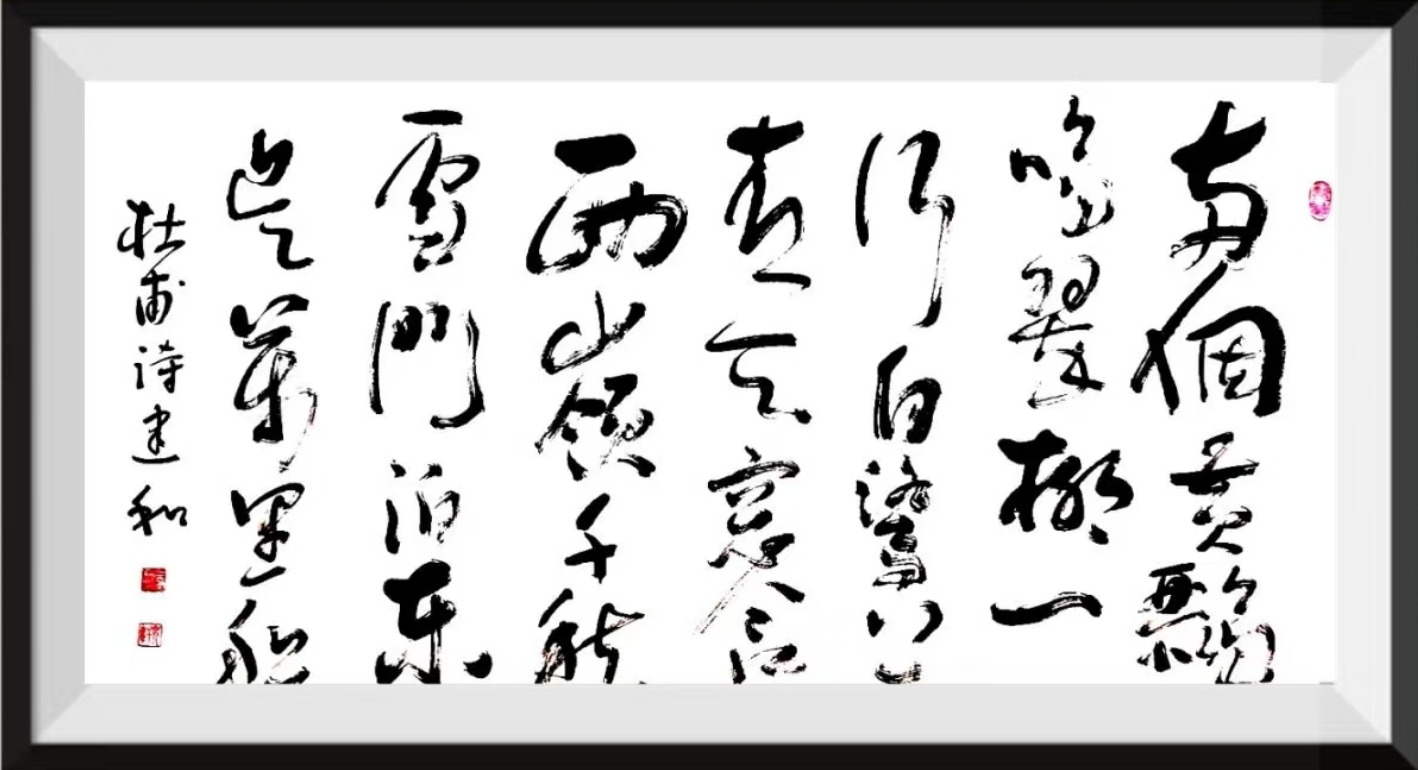 两個黄鸝
鳴翠柳一
行白鷺上
青天窗含
西嶺千秋
雪門泊东
吴萬里船
杜甫诗建和